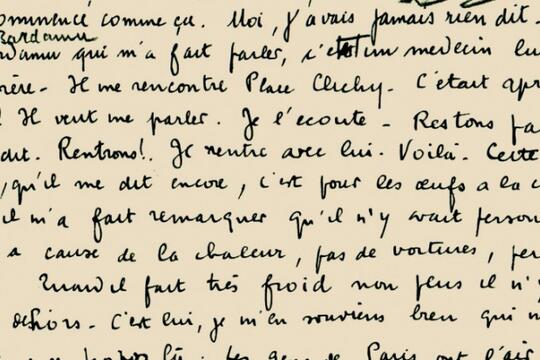 commencé comme ça. Moi, j'avais jamais rien dit.
Bardamu
qui m'a fait parler, c'est un medecin
Il me rencontre Place Clichy. C'était
! Il veut me parler. Je l'écoute. Restons
dit. Rentrons!. Je rentre avec lui. Voilà. Cette
, qu'il me dit encore, c'est pour les œufs a la
il m'a fait remarquer qu'il n'y avait
a cause de la chaleur, pas de voitures,
Quand il fait très froid non plus il n'y
dehors. C'est lui, je m'en souviens bien qui
Les gens de Paris ont l'air